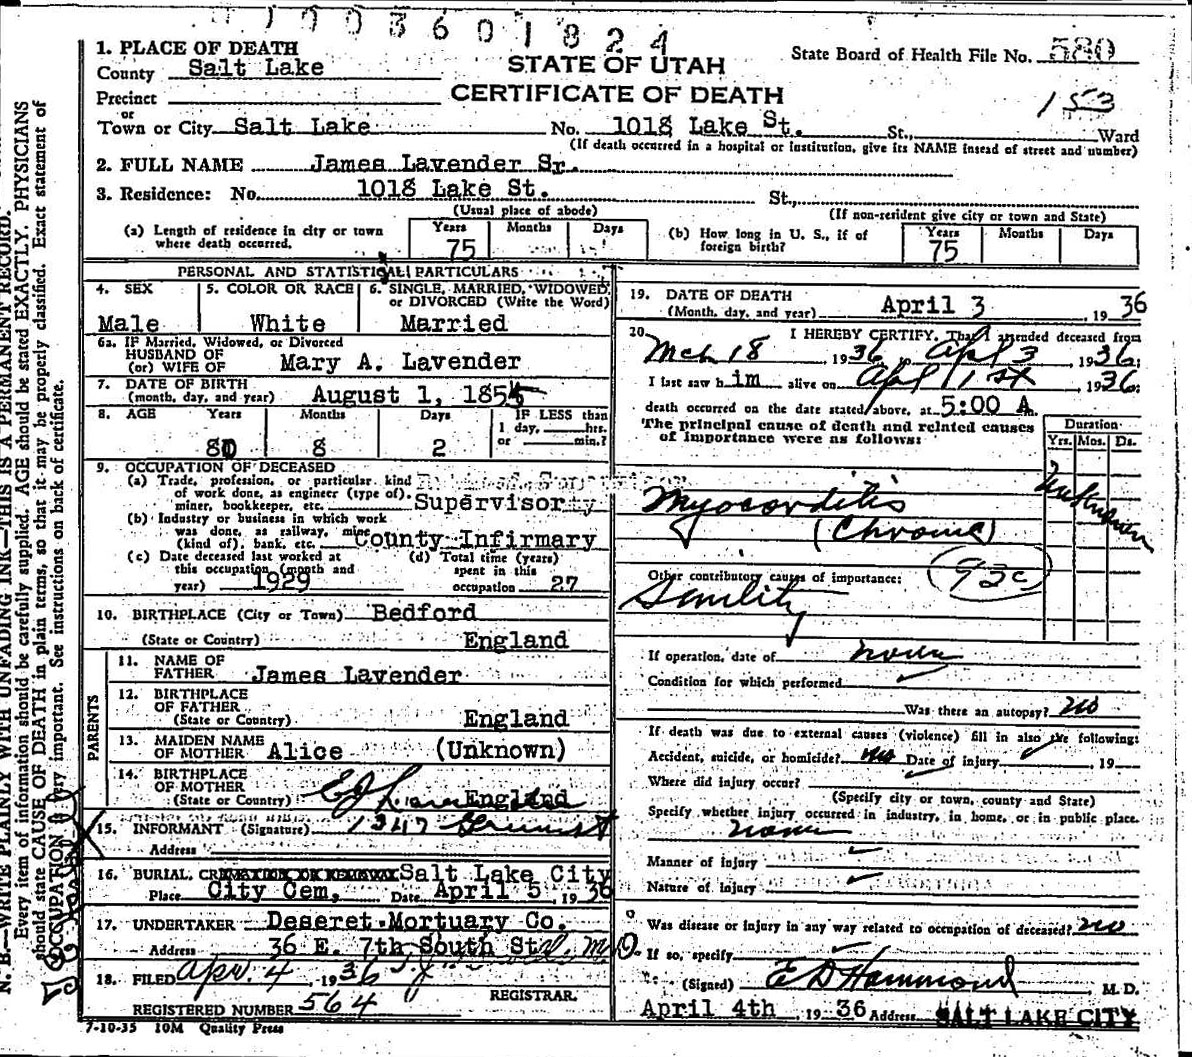 1003601824
1. PLACE OF DEATH
County Salt Lake
STATE OF UTAH
State Board of Health File No. 580
Precinct
CERTIFICATE OF DEATH
153
or
Town or City Salt Lake No. 1018 Lake St. St., Ward
(If death occurred in a hospital or institution, give its NAME instead of street and number)
2. FULL NAME James Lavender Sr.
3. Residence: No. 1018 Lake St. St.,
(Usual place of abode) (If non-resident give city or town and State)
(a) Length of residence in city or town where death occurred. Years 75 Months Days
(b) How long in U. S., if of foreign birth? Years 75 Months Days
PERSONAL AND STATISTICAL PARTICULARS
4. SEX Male
5. COLOR OR RACE White
6. SINGLE, MARRIED, WIDOWED, or DIVORCED (Write the Word) Married
6a. IF Married, Widowed, or Divorced
HUSBAND OF
(or) WIFE OF Mary A. Lavender
7. DATE OF BIRTH
(month, day, and year) August 1, 1855
8. AGE Years 80 Months 8 Days 2 IF LESS than 1 day, hrs. or min.?
9. OCCUPATION OF DECEASED
(a) Trade, profession, or particular kind
of work done, as engineer (type of).
miner, bookkeeper, etc. Supervisor
(b) Industry or business in which work
was done, as railway, mine
(kind of); bank, etc. County Infirmary
(c) Date deceased last worked at
this occupation (month and
year) 1929
(d) Total time (years)
spent in this
occupation 27
10. BIRTHPLACE (City or Town) Bedford
(State or Country) England
PARENTS
11. NAME OF
FATHER James Lavender
12. BIRTHPLACE
OF FATHER
(State or Country) England
13. MAIDEN NAME
OF MOTHER Alice (Unknown)
14. BIRTHPLACE
OF MOTHER
(State or Country) England
15. INFORMANT (Signature) 1347
Address
16. BURIAL, CREMATION OR REMOVAL Salt Lake City
Place City Cem, Date April 5, 1936
17. UNDERTAKER Deseret Mortuary Co.
Address 36 E. 7th South St
18. FILED Apr. 4, 1936
REGISTRAR.
REGISTERED NUMBER 564
7-10-35 10M Quality Press
19. DATE OF DEATH
(Month, day, and year) April 3, 1936
20. I HEREBY CERTIFY, That I attended deceased from
Mch 18, 1936, Apl 3, 1936;
I last saw him alive on Apl 1st, 1936;
death occurred on the date stated above, at 5:00 A.
The principal cause of death and related causes
of importance were as follows:
Duration
Yrs. Mos. Ds.
Myocorditis
(Chronic)
Unknown
Other contributory causes of importance:
93c
Senility
If operation, date of none
Condition for which performed
Was there an autopsy? no
If death was due to external causes (violence) fill in also the following:
Accident, suicide, or homicide? no Date of injury, 19
Where did injury occur?
(Specify city or town, county and State)
Specify whether injury occurred in industry, in home, or in public place.
none
Manner of injury
Nature of injury
Was disease or injury in any way related to occupation of deceased? no
If so, specify
(Signed) E D Hammond M. D.
April 4th 1936 Address SALT LAKE CITY
N. B.—WRITE PLAINLY WITH UNFADING INK—THIS IS A PERMANENT RECORD.
Every item of information should be carefully supplied. AGE should be stated EXACTLY. PHYSICIANS
should state CAUSE OF DEATH in plain terms, so that it may be properly classified. Exact statement of
OCCUPATION is very important. See instructions on back of certificate.